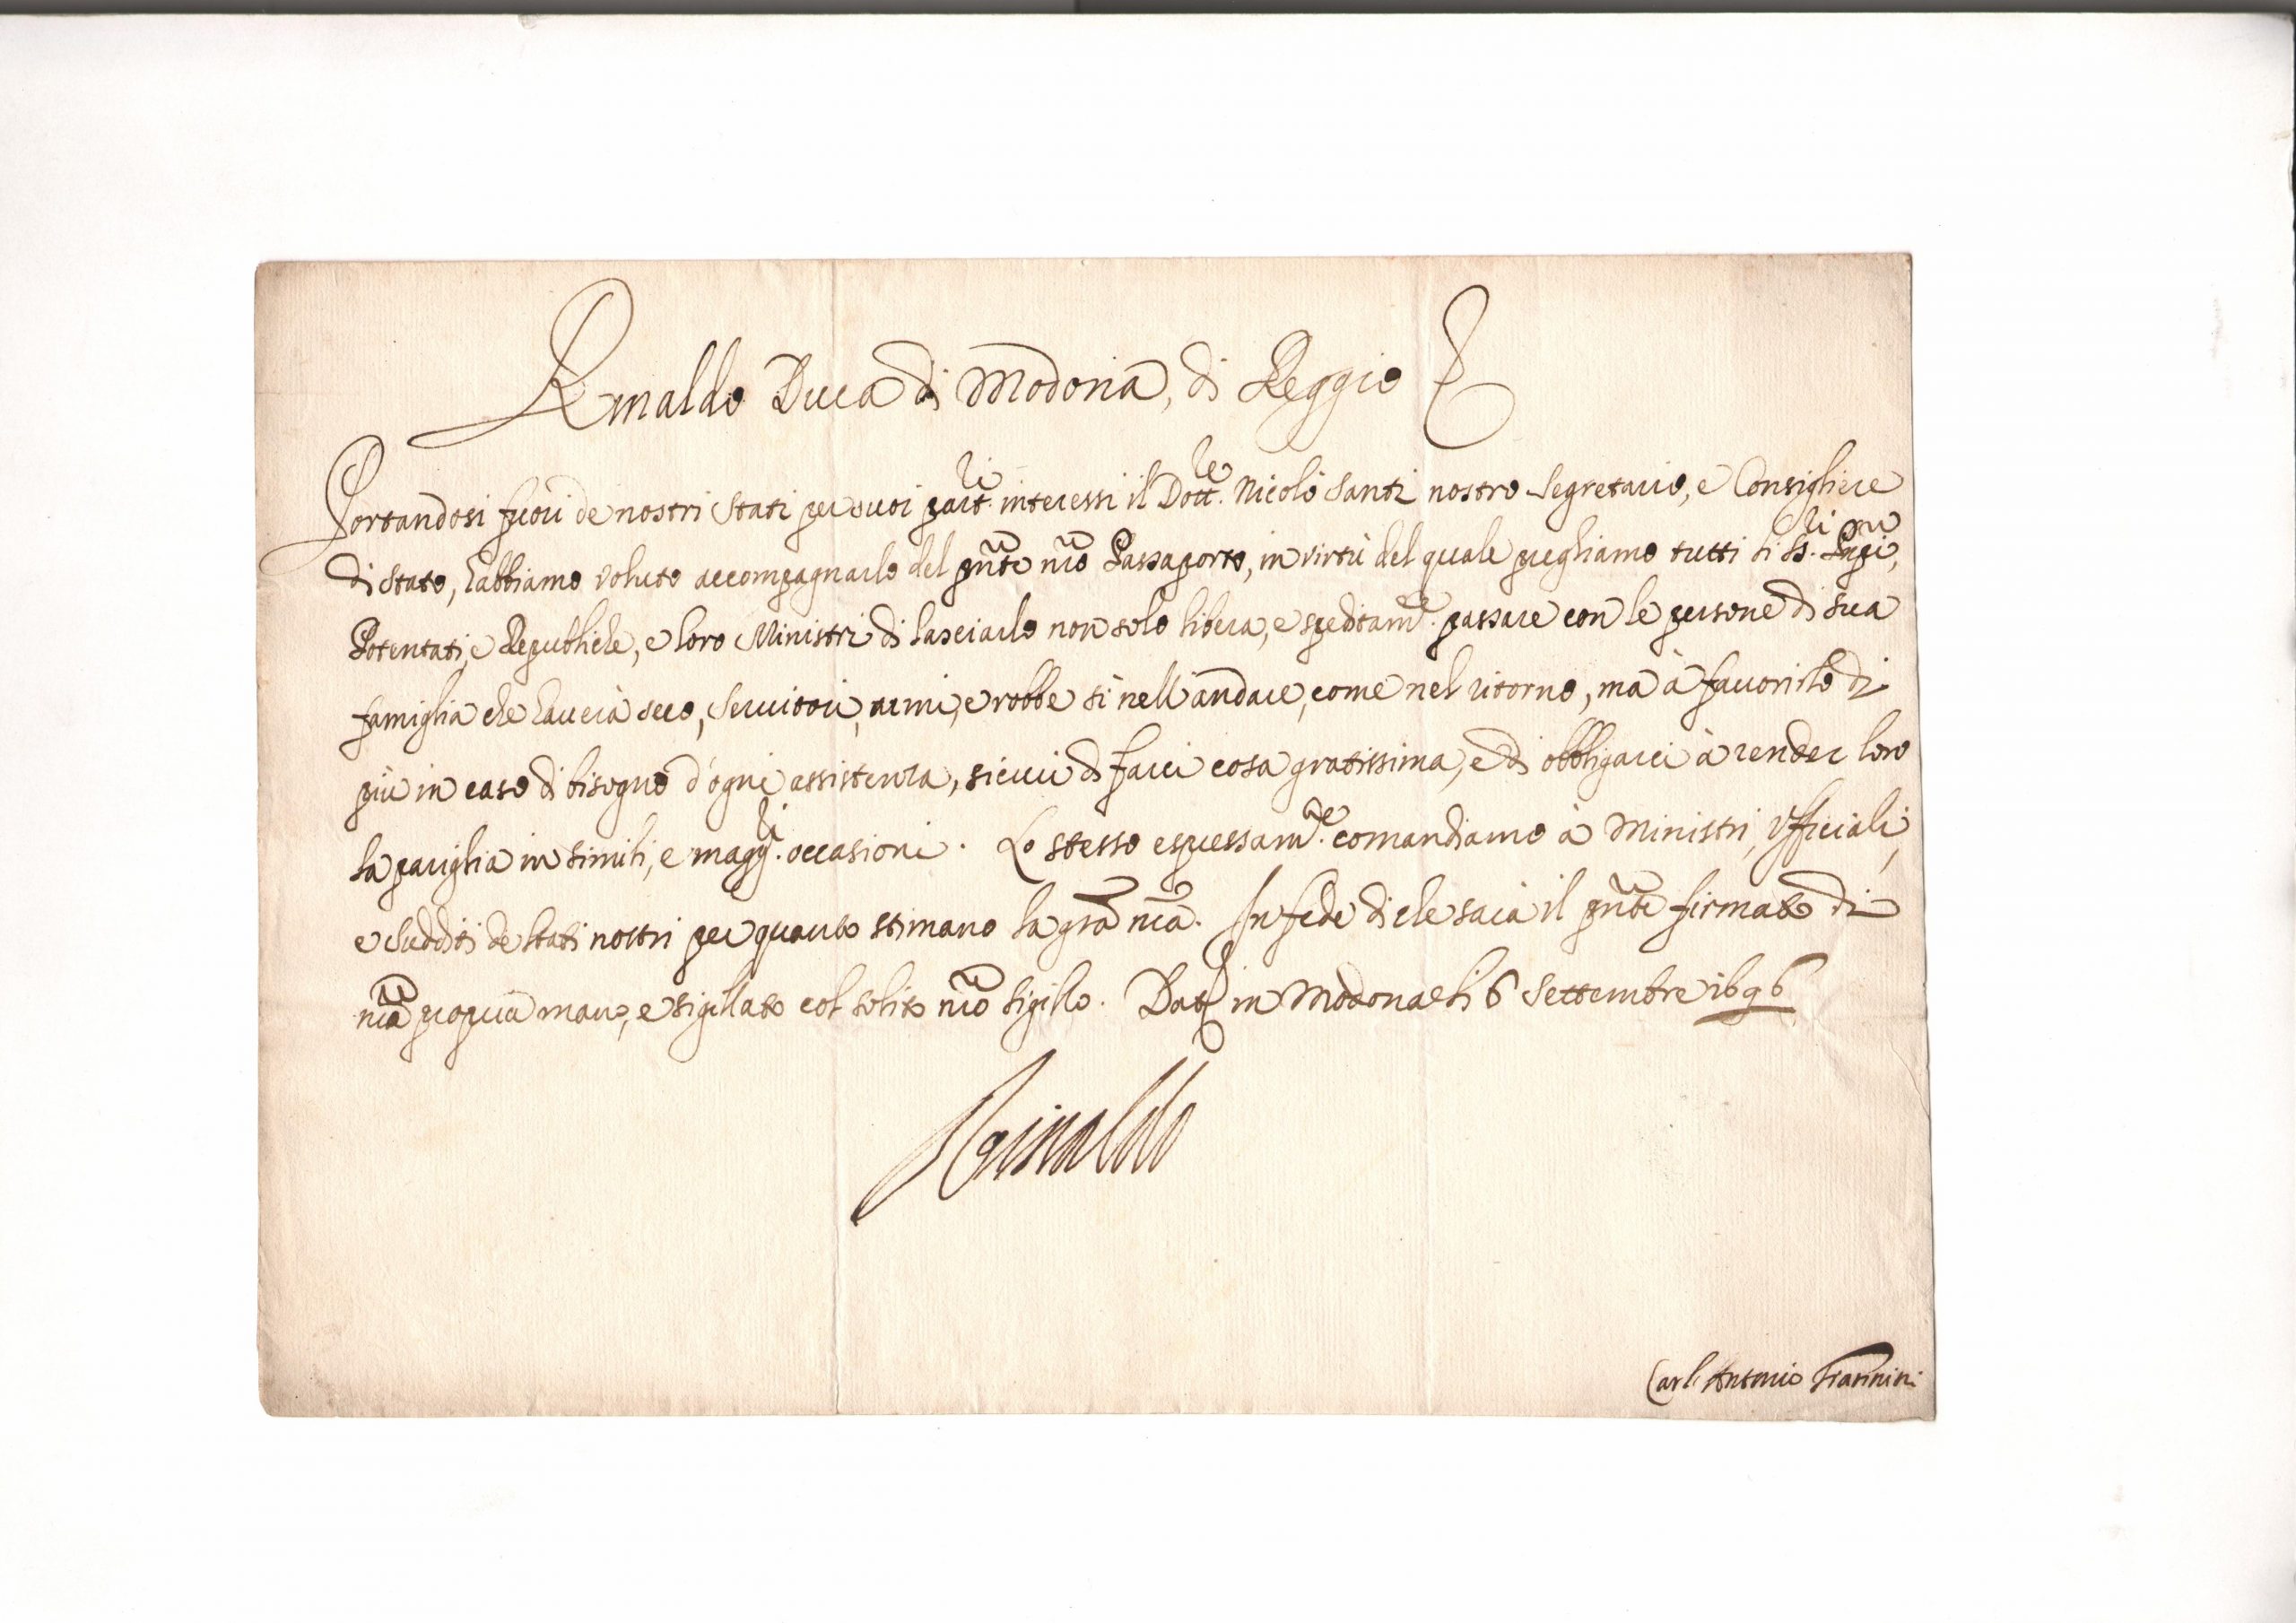 Rinaldo Duca di Modona, di Reggio &
Portandosi fuori de nostri Stati per suoi part.li interessi il Dott.re Nicolò Santi nostro Segretario, e Consigliere
di Stato, habbiamo voluto accompagnarlo del pñte nr̃o Passaporto, in virtù del quale preghiamo tutti li SS.ri Prñpi,
Potentati, e Republiche, e loro Ministri di lasciarlo non solo libera, e speditam.te passare con le persone di sua
famiglia che haverà seco, Servitori, armi, e robbe sì nell'andare, come nel ritorno, ma à favorirlo di
più in caso di bisogno d'ogni assistenza, sicuri di farci cosa gratissima, e di obbligarci à render loro
la pariglia in simili, e magg.ri occasioni. Lo stesso espressam.te comandiamo à Ministri, Ufficiali,
e Sudditi de Stati nostri per quanto stimano la grã nr̃a. In fede di che sarà il pñte firmato di
nr̃a propria mano, e sigillato col solito nr̃o sigillo. Dat. in Modona li 6 Settembre 1696
Rainaldo
Carl' Antonio Giannini